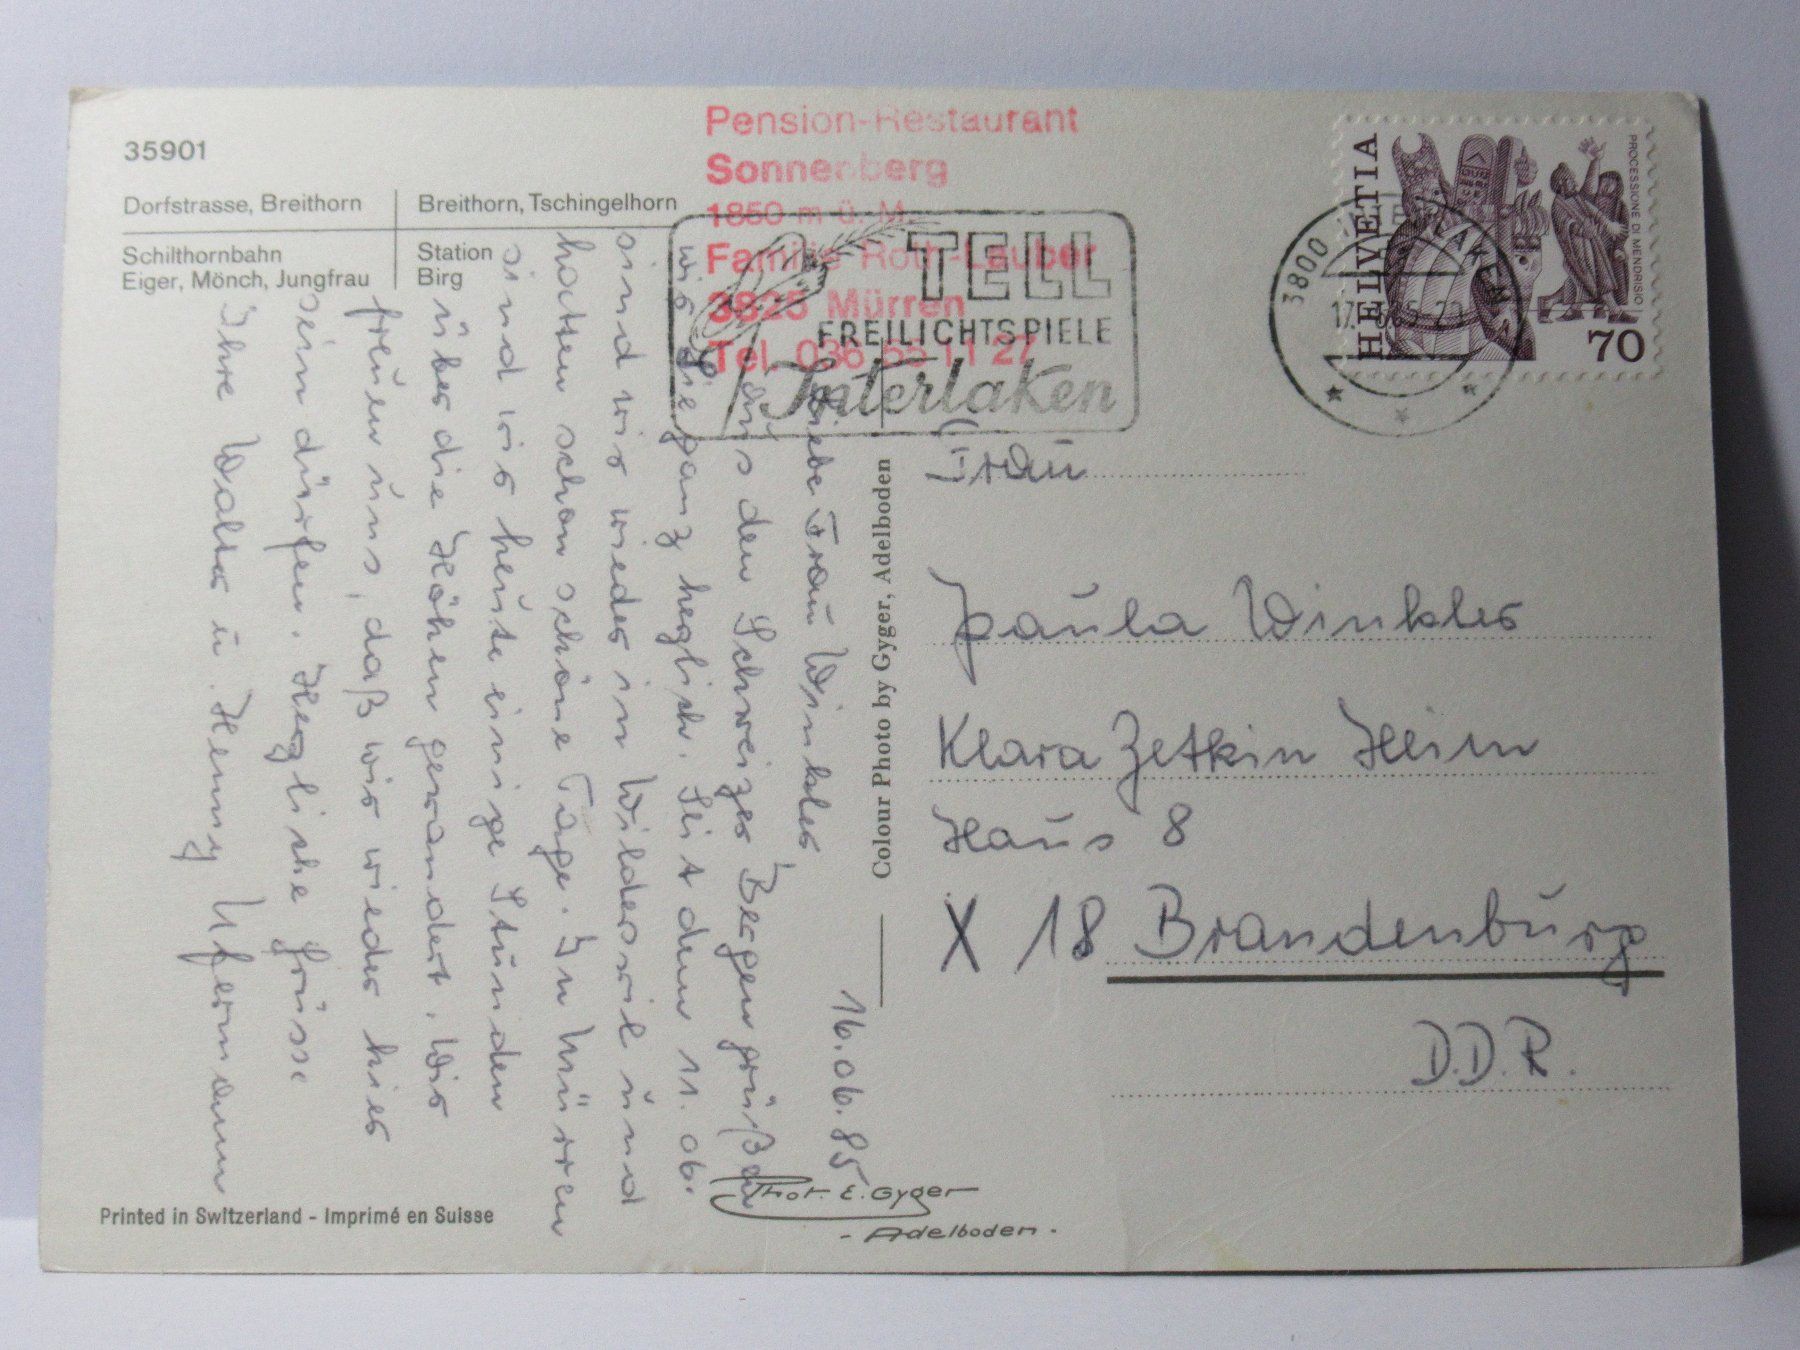 35901
Dorfstrasse, Breithorn
Breithorn, Tschingelhorn
Schilthornbahn
Eiger, Mönch, Jungfrau
Station
Birg
Pension-Restaurant
Sonnenberg
1850 m ü. M.
Familie Roth-Lauber
3825 Mürren
Tel. 036 55 11 27
TELL
FREILICHTSPIELE
Interlaken
HELVETIA
PROCESSIONE DI MENDRISIO
70
3800 INTERLAKEN
16.06.85
Liebe Frau Winkler,
aus den Schweizer Bergen grüßen
wir Sie ganz herzlich. Seit dem 11.06.
sind wir wieder in Wilderswil und
hatten schon schöne Tage. In Mürren
sind wir heute einige Stunden
über die Höhen gewandert. Wir
freuen uns, daß wir wieder hier
sein dürfen. Herzliche Grüsse
Ihre Walter u. Henny Ufermann
Colour Photo by Gyger, Adelboden
Frau
Paula Winkler
Klara Zetkin Heim
Haus 8
X 18 Brandenburg
D.D.R.
Printed in Switzerland - Imprimé en Suisse
Phot. E. Gyger
- Adelboden -